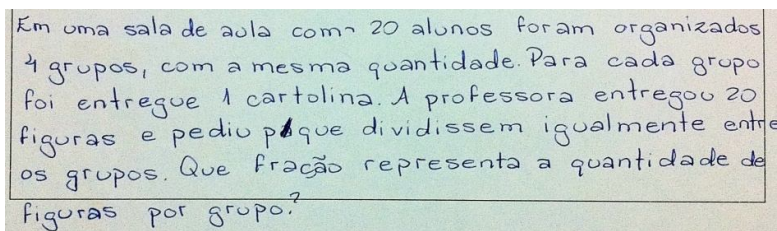 Em uma sala de aula com 20 alunos foram organizados
4 grupos, com a mesma quantidade. Para cada grupo
foi entregue 1 cartolina. A professora entregou 20
figuras e pediu p/ que dividissem igualmente entre
os grupos. Que fração representa a quantidade de
figuras por grupo?